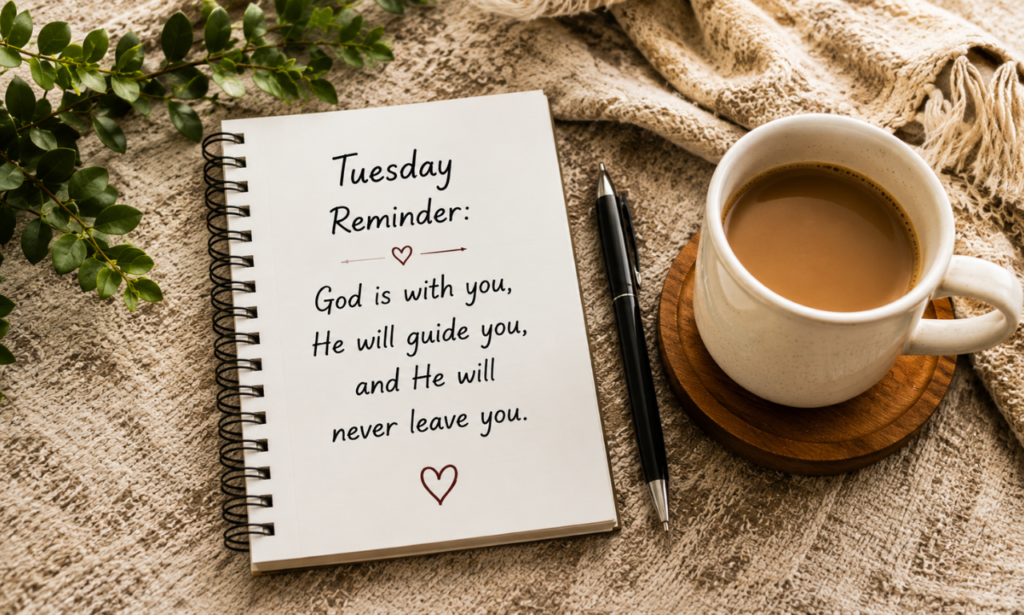 Tuesday
Reminder:
God is with you,
He will guide you,
and He will
never leave you.